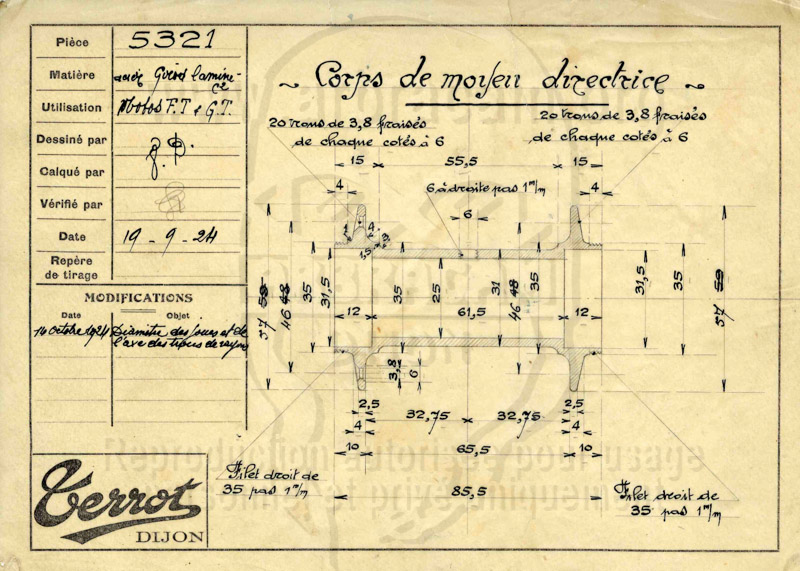 Pièce 5321
Matière acier Guérd laminé
Utilisation Motos F.T & G.T.
Dessiné par
Calqué par
Vérifié par
Date 19 - 9 - 24
Repère
de tirage
MODIFICATIONS
Date Objet
14 octobre 1924 Diamètre des joues et de
l'axe des trous de rayons
Terrot
DIJON
~ Corps de moyeu directrice ~
20 trous de 3,8 fraisés
de chaque cotés à 6
20 trous de 3,8 fraisés
de chaque cotés à 6
15 55,5 15
4 6 à droite pas 1 m/m 4
6
1,5
57 59
46 48
35
31,5
35
25
31
46 48
35
31,5
35
57 59
12 61,5 12
3,8
6
2,5 2,5
32,75 32,75
4 4
10 65,5 10
85,5
Filet droit de
35 pas 1 m/m
Filet droit de
35 pas 1 m/m
Reproduction autorisée pour usage